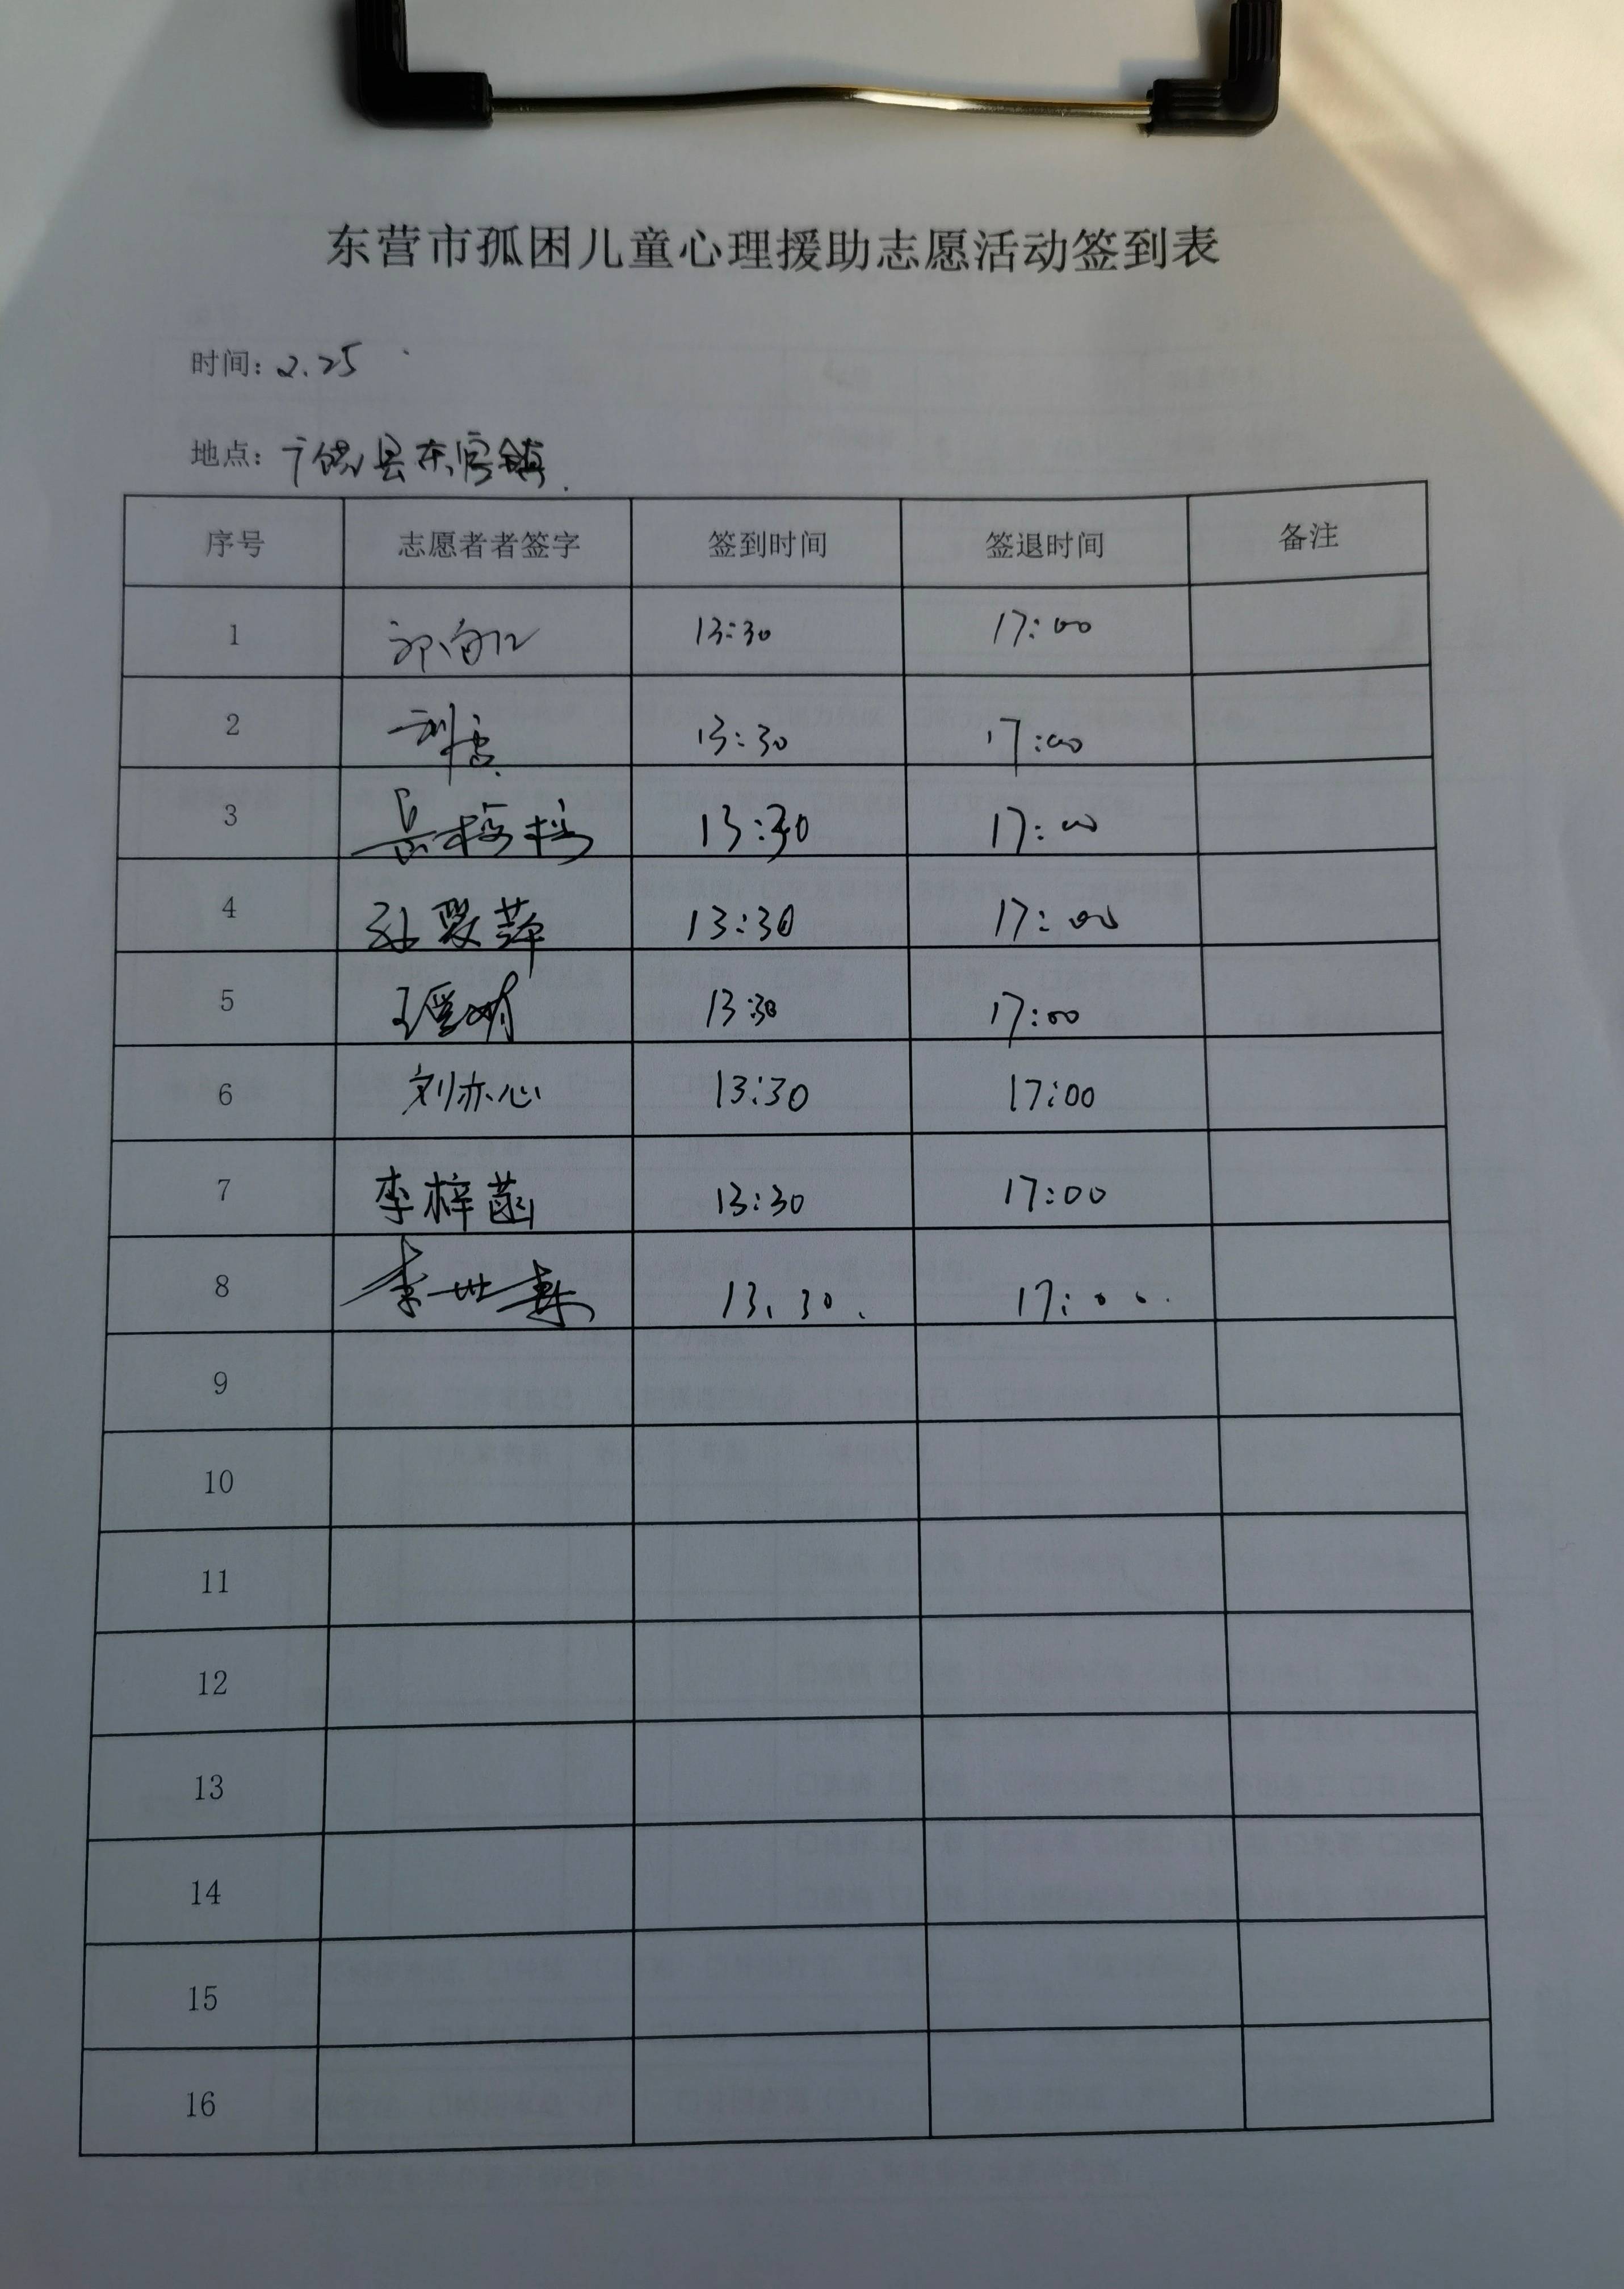 东营市孤困儿童心理援助志愿活动签到表
时间：2.25
地点：广饶县东官镇
序号 志愿者者签字 签到时间 签退时间 备注
1 13:30 17:00
2 13:30 17:00
3 13:30 17:00
4 孙翠萍 13:30 17:00
5 13:30 17:00
6 刘亦心 13:30 17:00
7 李梓菡 13:30 17:00
8 李世森 13.30. 17:00.
9
10
11
12
13
14
15
16